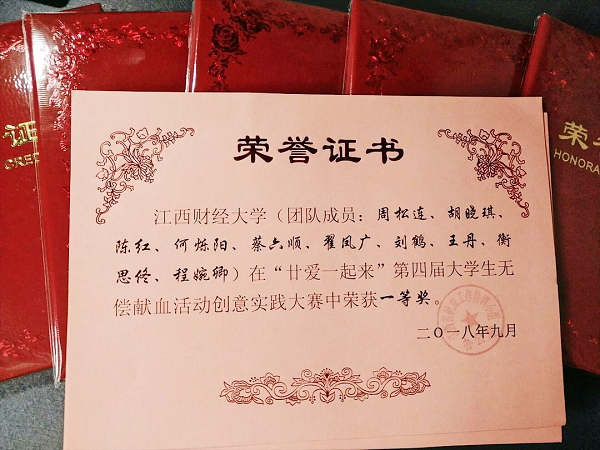 证
CRED
荣
HONORA
荣誉证书
江西财经大学（团队成员：周松连、胡晓琪、
陈红、何烁阳、蔡六顺、翟凤广、刘鹤、王丹、衡
思佟、程婉卿）在“廿爱一起来”第四届大学生无
偿献血活动创意实践大赛中荣获一等奖。
二〇一八年九月